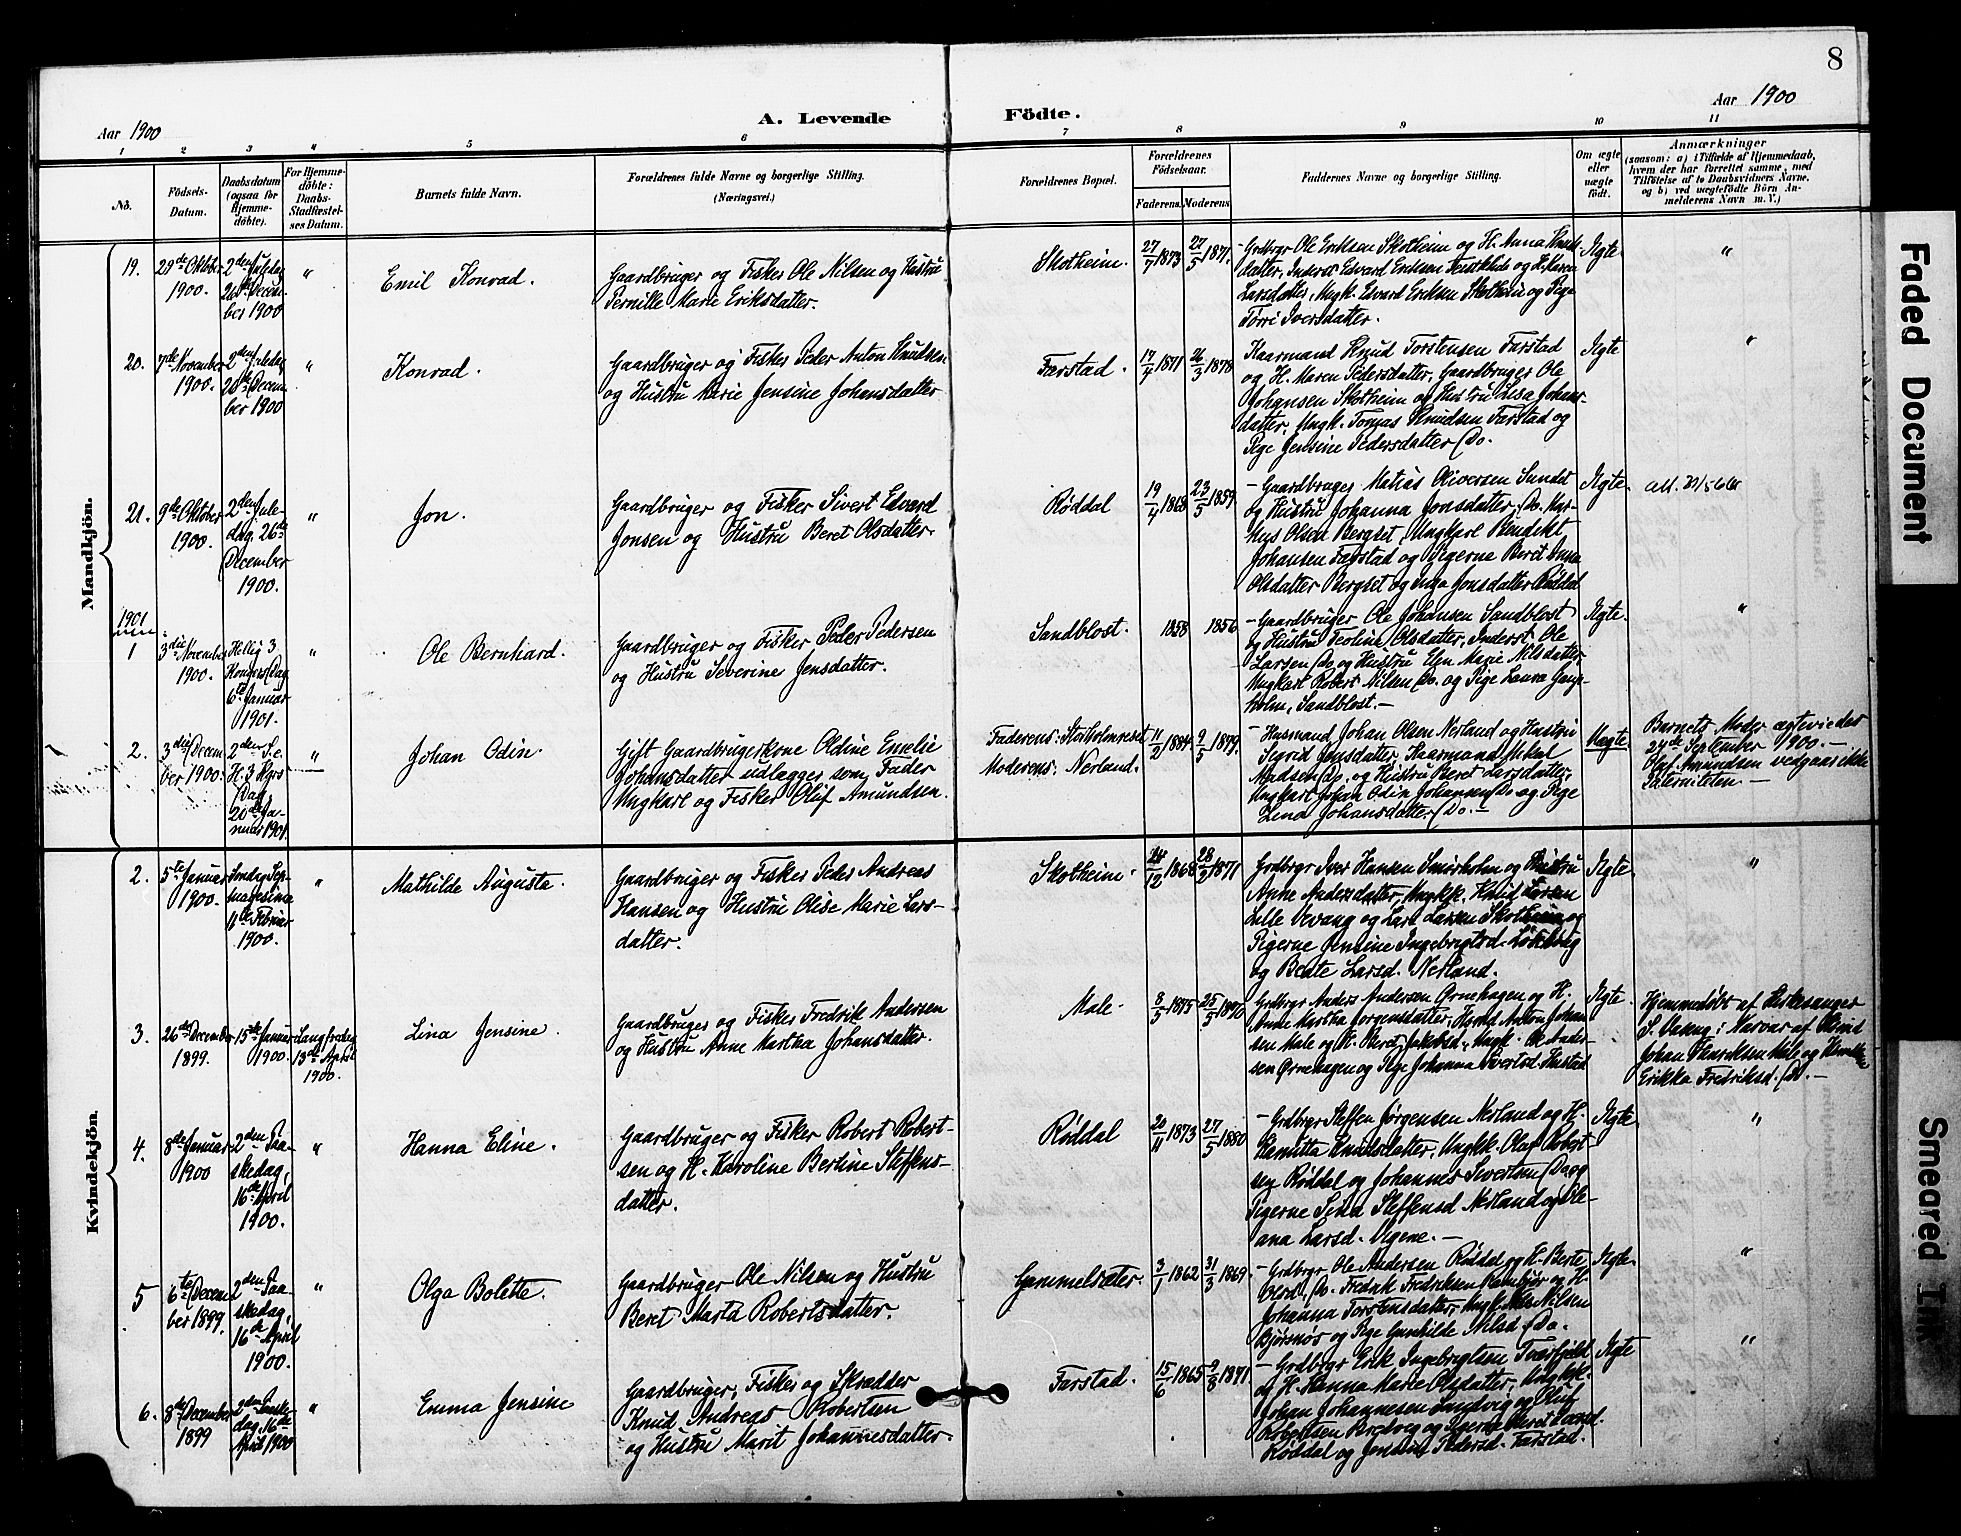 8
Aar 1900
A. Levende Födte.
Aar 1900
1 2 3 4 5 6 7 8 9 10 11
No.
Födsels-
Datum.
Daabsdatum
(ogsaa for
Hjemme-
döbte).
For Hjemme-
döbte:
Daabs-
Stadfæstel-
ses Datum.
Barnets fulde Navn.
Forældrenes fulde Navne og borgerlige Stilling.
(Næringsvei.)
Forældrenes Bopæl.
Forældrenes
Födselsaar.
Faderens. Moderens.
Faddernes Navne og borgerlige Stilling.
Om ægte
eller
uægte
födt.
Anmærkninger
(saasom: a) i Tilfælde af Hjemmedaab,
hvem der har forrettet samme, med
Tilföielse af to Daabsvidners Navne,
og b) ved uægtefödte Börn An-
melderens Navn m. V.)
Mandkjön.
19.
29de Oktober
1900.
2den Juledag
26de Decem-
ber 1900
"
Emil Konrad.
Gaardbruger og Fisker Ole Nilsen og Hustru
Pernille Marie Eriksdatter.
Skotheim.
27/7 1873
27/5 1871.
Grdbrgr Ole Eriksen Skotheim og H. Anna Knuds-
datter, Inderst Edvard Eriksen og H. Karen
Larsdatter, Ungk. Edvard Eriksen Skotheim og Pige
Tørri Iversdatter.
Ægte
"
20.
7de November
1900.
2den Juledag
26de Decem-
ber 1900
"
Konrad.
Gaardbruger og Fisker Peder Anton Knudsen
og Hustru Marie Jensine Johansdatter
Farstad.
17/7 1871
26/3 1878
Kaarmand Knud Torstensen Farstad
og H. Maren Pedersdatter, Gaardbruger Ole
Johansen Skotheim og Hustru Lisa Johans-
datter, Ungk. Tomas Knudsen Farstad og
Pige Jensine Pedersdatter Do.
Ægte
"
21.
9de Oktober
1900.
2den Jule-
dag, 26de
December
1900.
"
Jon.
Gaardbruger og Fisker Sivert Edvard
Jonsen og Hustru Beret Olsdatter.
Røddal
19/4 1868
23/5 1859.
Gaardbruger Matias Oliversen Sundet
og Hustru Johanna Jonsdatter, Do.
Olsen Bergset, Ungkarl Bendikt
Johansen Farstad og Pigerne Beret Anna
Olsdatter Bergset og Inga Jonsdatter Røddal
Ægte.
1901
1
3die November
1900.
Hellig 3
Kongers Dag
6te Januar
1901.
"
Ole Bernhard.
Gaardbruger og Fisker Peder Pedersen
og Hustru Severine Jensdatter.
Sandblost.
1858
1856
Gaardbruger Ole Johansen Sandblost
og Hustru Olsdatter, Inderst Ole
Larsen Do og Hustru Elen Marie Nilsdatter
Ungkarl Robert Nilsen Do. og Pige Laura
holm, Sandblost.
Ægte.
"
2.
3die Decem-
ber 1900.
2den S. e.
H. 3 Kgrs
Dag,
20de Ja-
nuar 1901
"
Johan Odin.
Gift Gaardbrugerkone Oldine Emelie
Johansdatter udlægger som Fader
Ungkarl og Fisker Oluf Amundsen.
Faderens: Storholmneset
Moderens: Nerland.
11/2 1884
9/5 1879.
Husmand Johan Olsen Nerland og Hustru
Sigrid Jonsdatter, Kaarmand Mikal
Madsen Do. og Hustru Beret Larsdatter,
Ungkarl Johan Odin Johansen Do og Pige
Lina Johansdatter Do.
Uægte.
Barnets Moder ægteviedes
27de September 1900.
Oluf Amundsen vedgaar ikke
Paterniteten
Kvindekjön.
2.
5te Januar
1900.
Søndag Sep-
tuagesima
11te Februar
1900.
"
Mathilde Augusta.
Gaardbruger og Fisker Peder Andreas
Hansen og Hustru Olise Marie Lars-
datter.
Skotheim.
/12 1868
28/2 1871
Grdbrgr Iver Hansen Smørholm og Hustru
Anne Andersdatter, Ungkk. Knud Larsen
Lille Vevang og Lars Larsen Skotheim og
Pigerne Jensine Ingebrigtsd.
og Beate Larsd. Nerland.
Ægte.
"
3.
26de December
1899.
15de Januar
1900.
Langfredag
13de April
1900.
Lina Jensine.
Gaardbruger og Fisker Fredrik Andersen
og Hustru Anne Martha Johansdatter.
Male.
8/5 1875
25/5
Grdbrgr Anders Andersen Ørnehagen og H.
Anne Martha Jørgensdatter, Anton Johan
sen Male og H. Beret Jakobsd., Ungk. Ole Ander-
sen Ørnehagen og Pige Johanna Sivertsd. Hustad
Ægte.
Hjemmedøbt af Kirkesanger
S. i Nærvær af
Johan Henriksen Male og
Erikka Fredriksd. Do.
4.
8de Januar
1900
2den Paa-
skedag,
16de April
1900.
"
Hanna Eline.
Gaardbruger og Fisker Robert Robert-
sen og H. Karoline Bertine Steffens-
datter.
Røddal
20/11 1873
27/5 1880
Grdbrgr Steffen Jørgensen Nerland og H.
Knudsdatter, Ungkk. Olaf Robert-
sen Røddal og Johannes Sivertsen Do og
Pigerne Lina Steffensd Nerland og Ole-
ana Larsd.
Ægte
"
5
6te Decem
ber 1899.
2den Paa-
skedag,
16de April
1900.
"
Olga Bolette.
Gaardbruger Ole Nilsen og Hustru
Beret Marta Robertsdatter.
Gammelsæter.
3/7 1862
31/3 1869.
Grdbrgr Ole Andersen Røddal og H. Berte
Olsd, Do. Fredrik Fredriksen og H.
Johanna Torstensdatter, Ungk. Nils Nilsen
Bjørsnøs og Pige Gunhilde Nilsd. Do.
Ægte.
"
6.
8de December
1899
2den Paaske-
dag, 16de
April 1900
"
Emma Jensine
Gaardbruger, Fisker og Skrædder
Knud Andreas Robertsen
og Hustru Marit Johannesdatter.
Farstad.
15/6 1865
9/8 1871
Grdbrgr Erik Ingebrigtsen Tverfjeld
og H. Hanna Marie Olsdatter, Ungkk.
Johan Johannesen Sandvig og Oluf
Robertsen og Pigerne Beret Larsd.
Røddal og Jensine Pedersd. Farstad.
Ægte
"
Faded Document
Smeared Ink